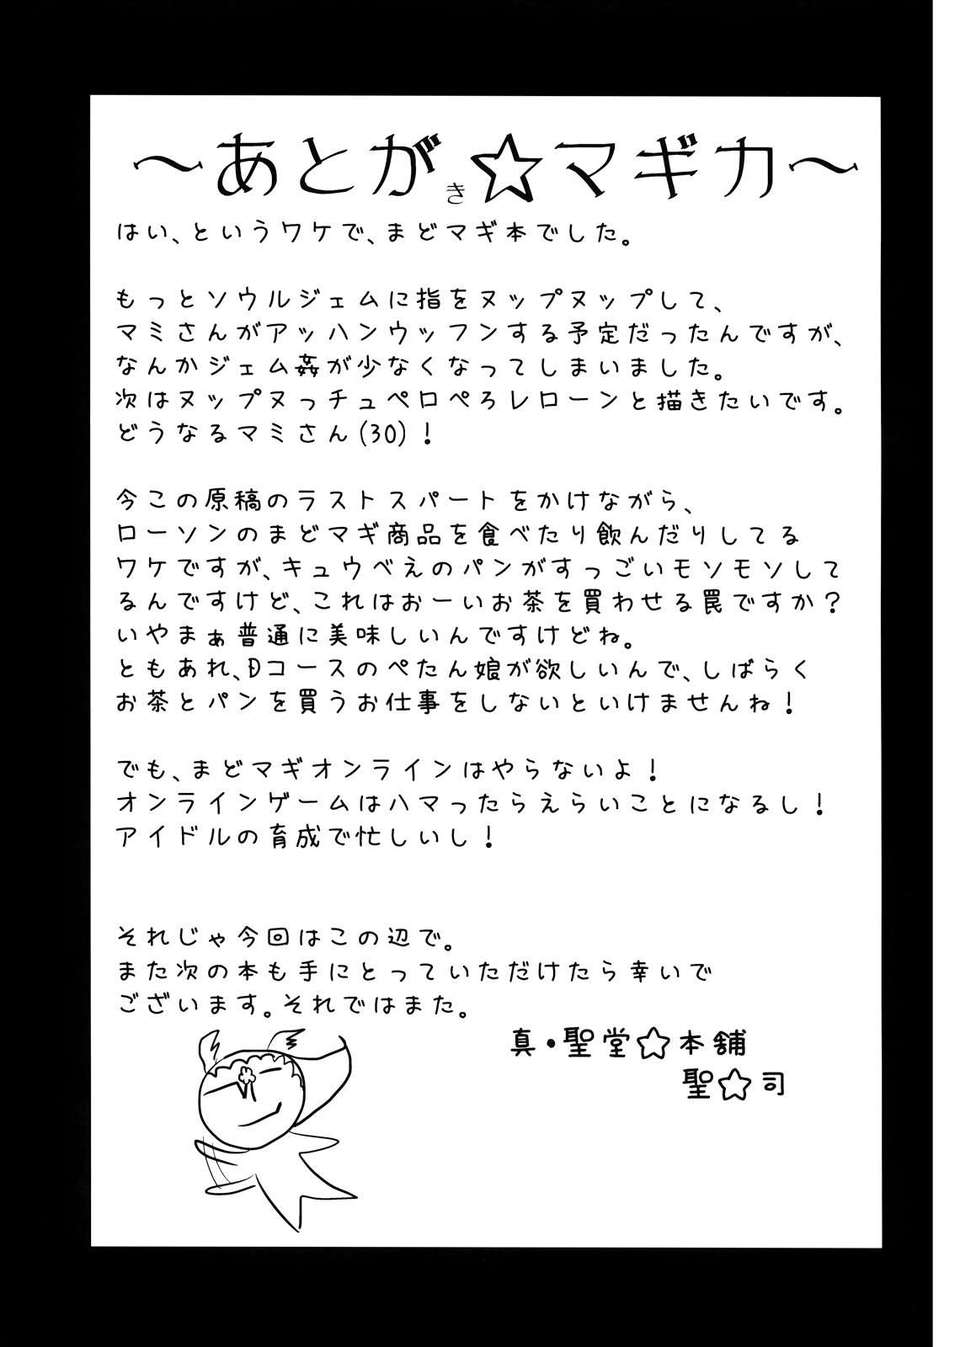 ～あとがき☆マギカ～
はい、というワケで、まどマギ本でした。
もっとソウルジェムに指をヌップヌップして、
マミさんがアッハンウッフンする予定だったんですが、
なんかジェム姦が少なくなってしまいました。
次はヌップヌっチュペロペろレローンと描きたいです。
どうなるマミさん(30)！
今この原稿のラストスパートをかけながら、
ローソンのまどマギ商品を食べたり飲んだりしてる
ワケですが、キュウべえのパンがすっごいモソモソして
るんですけど、これはおーいお茶を買わせる罠ですか？
いやまぁ普通に美味しいんですけどね。
ともあれ、Dコースのぺたん娘が欲しいんで、しばらく
お茶とパンを買うお仕事をしないといけませんね！
でも、まどマギオンラインはやらないよ！
オンラインゲームはハマったらえらいことになるし！
アイドルの育成で忙しいし！
それじゃ今回はこの辺で。
また次の本も手にとっていただけたら幸いで
ございます。それではまた。
真・聖堂☆本舗
聖☆司